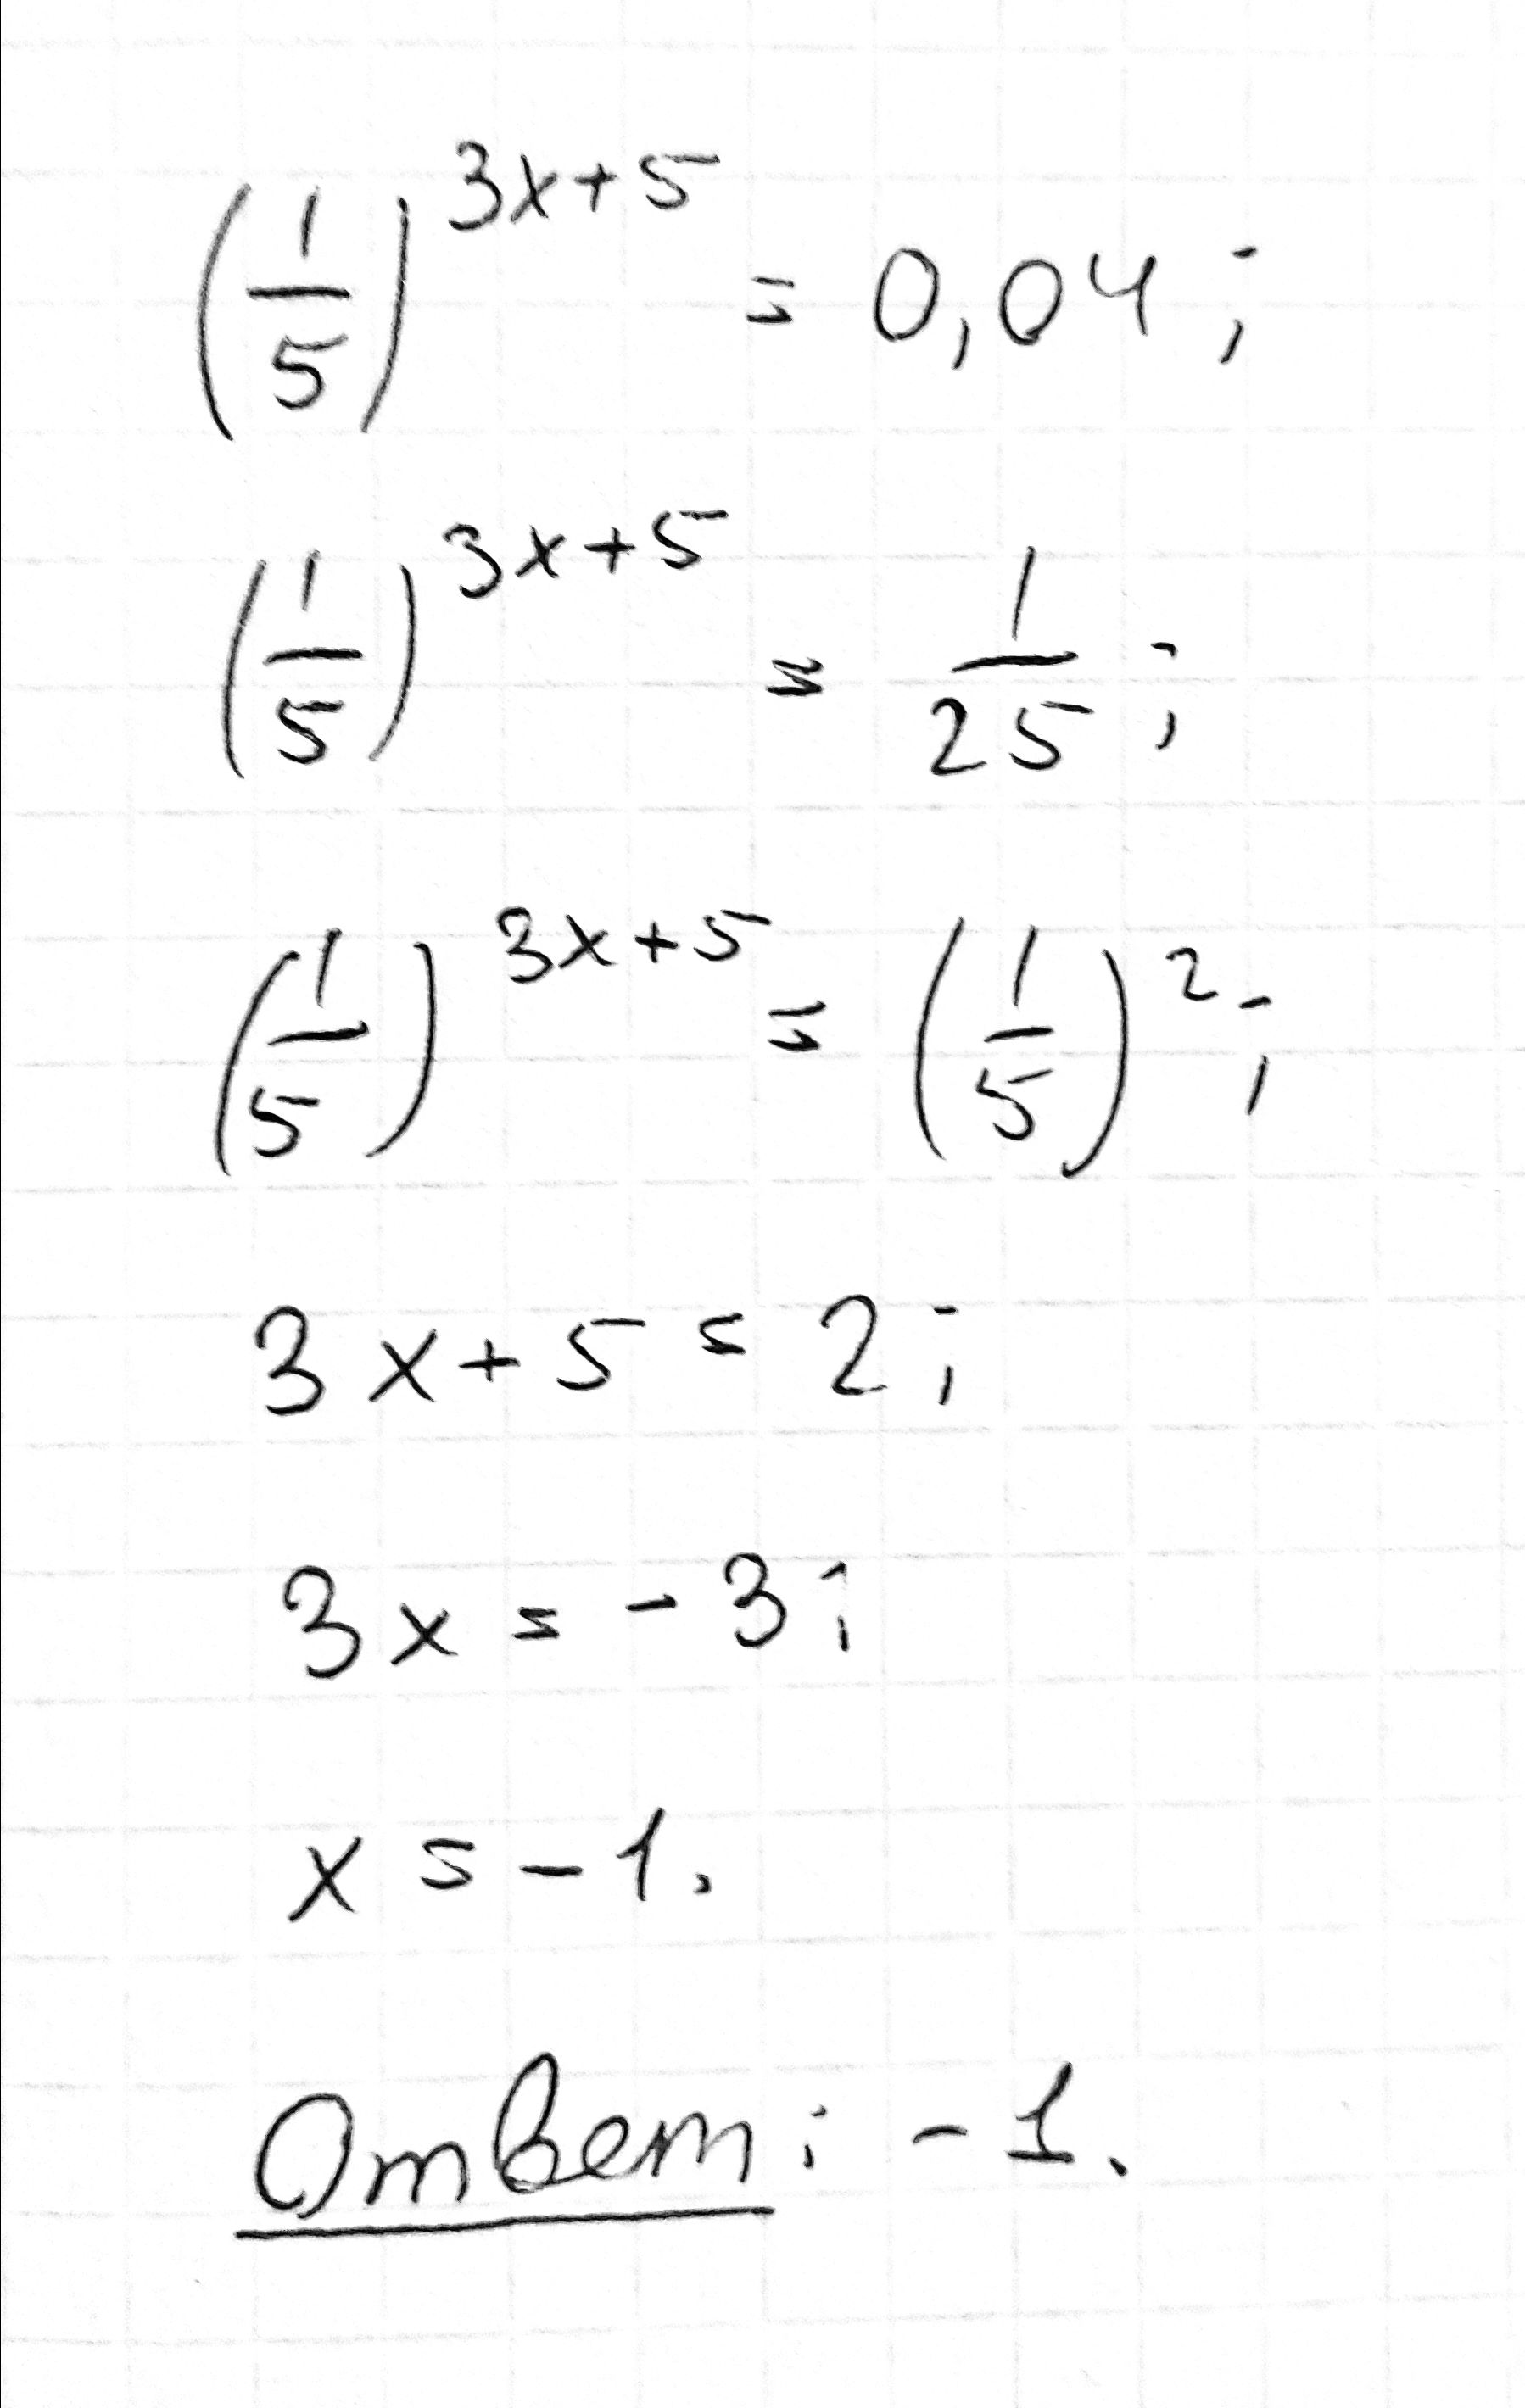 (1/5)^(3x+5) = 0,04;
(1/5)^(3x+5) = 1/25;
(1/5)^(3x+5) = (1/5)^2;
3x+5=2;
3x=-3;
x=-1.
Ответ: -1.